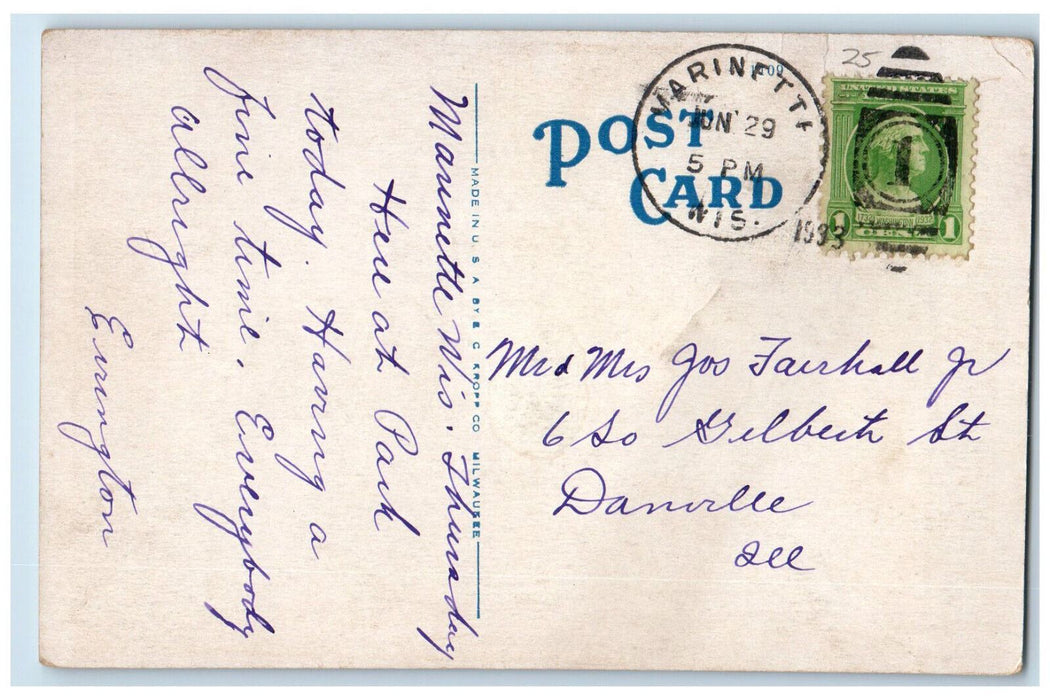 25
1109
MARINETTE
JUN 29
5 PM
WIS.
1933
UNITED STATES
1 1732 WASHINGTON 1932 1
1
POST
CARD
MADE IN U. S. A. BY E. C. KROPP CO. MILWAUKEE
Marinette Wis. Thursday
Here at Park
today. Having a
fine time. Everybody
allright
Errington
Mr & Mrs Jos Fairhall Jr
6 So Gilbert St
Danville
Ill